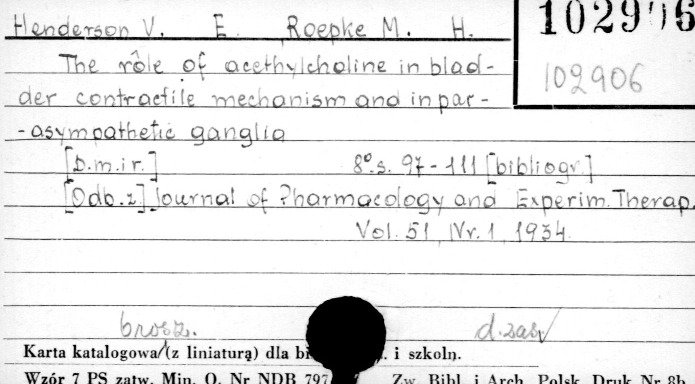 Henderson V. E. Roepke M. H.
102906
102906
The rôle of acethylcholine in blad-
der contractile mechanism and in par-
-asympathetic ganglia
[D.m.ir.] 8º.s. 97-111 [bibliogr.]
[Odb.z] Journal of Pharmacology and Experim. Therap.
Vol. 51, Nr. 1, 1934.
brosz. d.zas
Karta katalogowa (z liniaturą) dla i szkoln.
Wzór 7 PS zatw. Min. O. Nr NDB 797 Zw. Bibl. i Arch. Polsk. Druk Nr 8b.